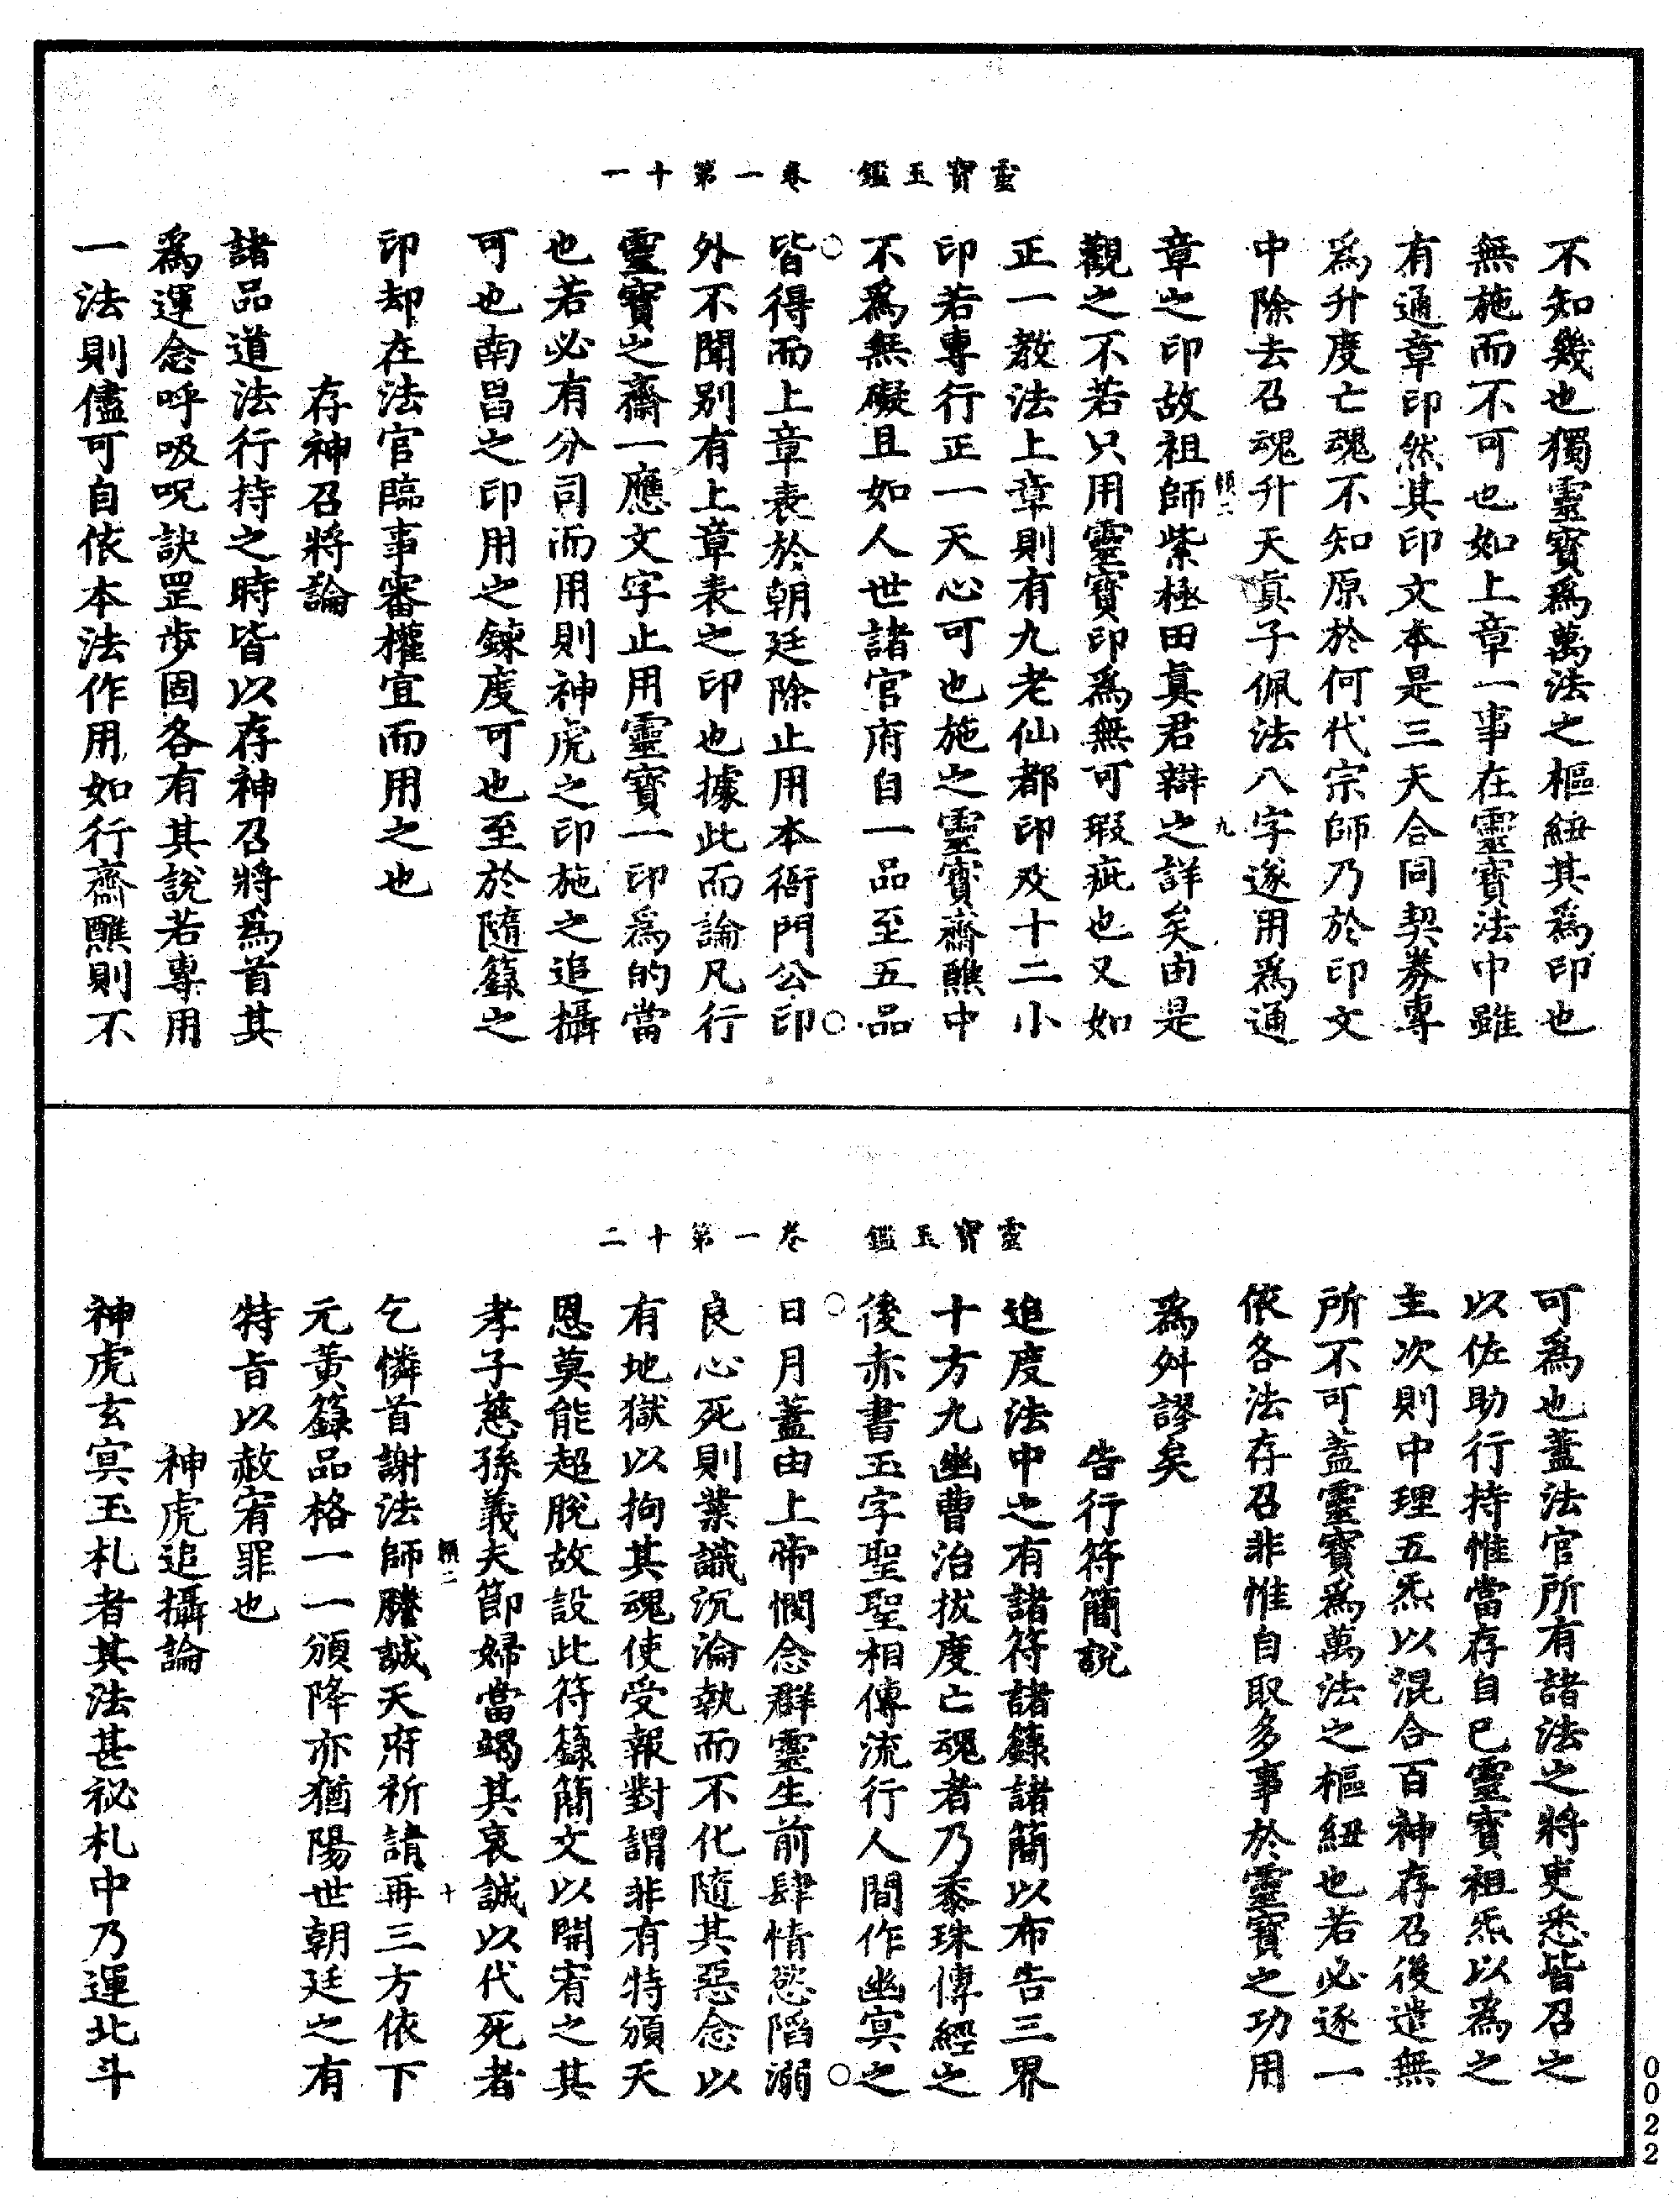 靈寶玉鑑　卷一第十一
不知幾也獨靈寶爲萬法之樞紐其爲印也
無施而不可也如上章一事在靈寶法中雖
有通章印然其印文本是三天合同契券專
爲升度亡魂不知原於何代宗師乃於印文
中除去召魂升天眞子佩法八字遂用爲通
二　九
章之印故祖師紫極田眞君辯之詳矣由是
觀之不若只用靈寶印爲無可瑕疵也又如
正一敎法上章則有九老仙都印及十二小
印若專行正一天心可也施之靈寶齋醮中
不爲無礙且如人世諸官府自一品至五品
皆得而上章表於朝廷除止用本衙門公印
外不聞别有上章表之印也據此而論凡行
靈寶之齋一應文字止用靈寶一印爲的當
也若必有分司而用則神虎之印施之追攝
可也南昌之印用之鍊度可也至於隨籙之
印却在法官臨事審權宜而用之也
存神召將論
諸品道法行持之時皆以存神召將爲首其
爲運念呼吸呪訣罡步固各有其說若專用
一法則儘可自依本法作用如行齋醮則不
靈寶玉鑑　卷一第十二
可爲也蓋法官所有諸法之將吏悉皆召之
以佐助行持惟當存自己靈寶祖炁以爲之
主次則中理五炁以混合百神存召後遣無
所不可盖靈寶爲萬法之樞紐也若必逐一
依各法存召非惟自取多事於靈寶之功用
爲舛謬矣
告行符簡說
追度法中之有諸符諸籙諸簡以布告三界
十方九幽曹治拔度亡魂者乃黍珠傳經之
後赤書玉字聖聖相傳流行人間作幽冥之
日月蓋由上帝憫念群靈生前肆情慾陷溺
良心死則業識沉淪執而不化隨其惡念以
有地獄以拘其魂使受報對謂非有特頒天
恩莫能超脫故設此符籙簡文以開宥之其
孝子慈孫義夫節婦當竭其哀誠以代死者
二　十
乞憐首謝法師謄誠天府祈請再三方依下
元黃籙品格一一頒降亦猶陽世朝廷之有
特旨以赦宥罪也
神虎追攝論
神虎玄冥玉札者其法甚祕札中乃運北斗
0022